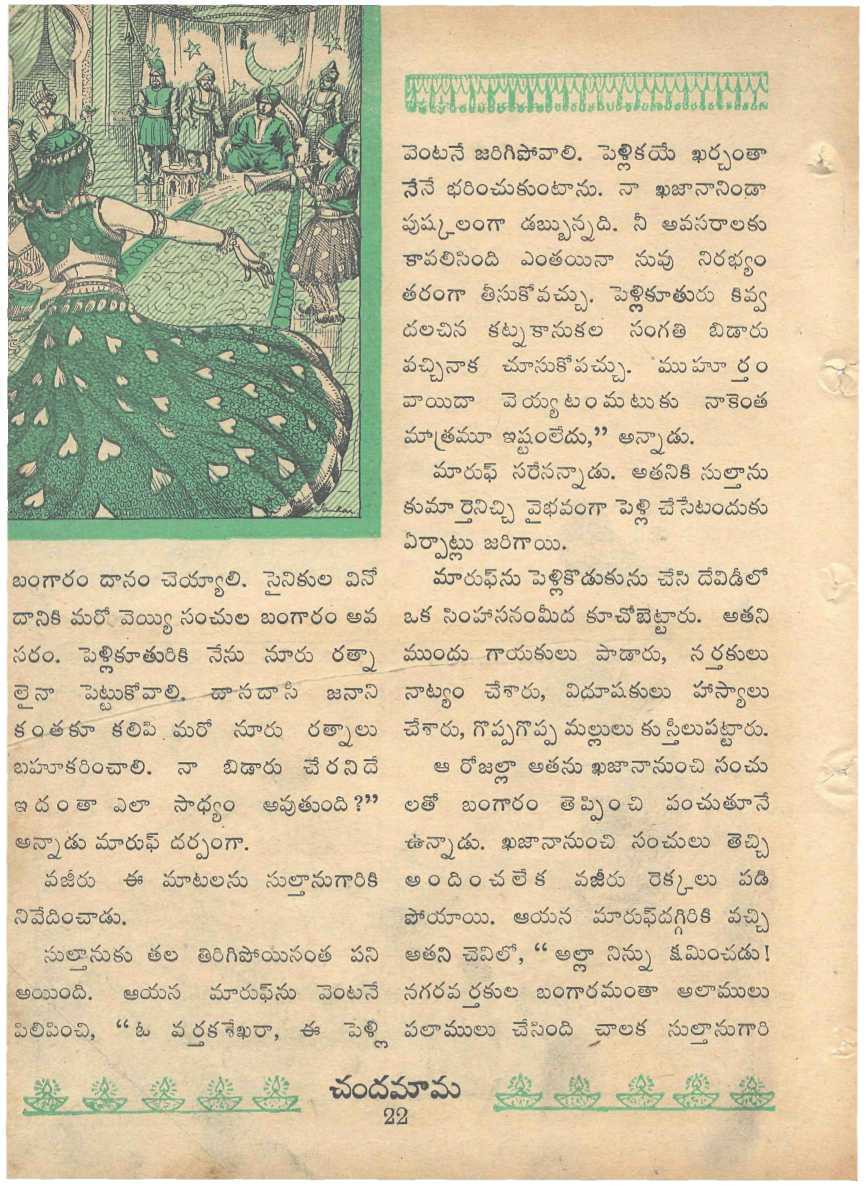 బంగారం దానం చెయ్యాలి. సైనికుల వినో
దానికి మరో వెయ్యి సంచుల బంగారం అవ
సరం. పెళ్లికూతురికి నేను నూరు రత్నా
లైనా పెట్టుకోవాలి. దాసదాసి జనాని
కంతకూ కలిపి మరో నూరు రత్నాలు
బహూకరించాలి. నా బిడారు చేరనిదే
ఇదంతా ఎలా సాధ్యం అవుతుంది?”
అన్నాడు మారుఫ్ దర్పంగా.
వజీరు ఈ మాటలను సుల్తానుగారికి
నివేదించాడు.
సుల్తానుకు తల తిరిగిపోయినంత పని
అయింది. ఆయన మారుఫ్‌ను వెంటనే
పిలిపించి, “ఓ వర్తకశేఖరా, ఈ పెళ్లి
వెంటనే జరిగిపోవాలి. పెళ్లికయే ఖర్చంతా
నేనే భరించుకుంటాను. నా ఖజానానిండా
పుష్కలంగా డబ్బున్నది. నీ అవసరాలకు
కావలిసింది ఎంతయినా నువు నిరభ్యం
తరంగా తీసుకోవచ్చు. పెళ్లికూతురు కివ్వ
దలచిన కట్నకానుకల సంగతి బిడారు
వచ్చినాక చూసుకోవచ్చు. ముహూర్తం
వాయిదా వెయ్యటంమటుకు నాకెంత
మాత్రమూ ఇష్టంలేదు,” అన్నాడు.
మారుఫ్ సరేనన్నాడు. అతనికి సుల్తాను
కుమార్తెనిచ్చి వైభవంగా పెళ్లి చేసేటందుకు
ఏర్పాట్లు జరిగాయి.
మారుఫ్‌ను పెళ్లికొడుకును చేసి దేవిడీలో
ఒక సింహాసనంమీద కూచోబెట్టారు. అతని
ముందు గాయకులు పాడారు, నర్తకులు
నాట్యం చేశారు, విదూషకులు హాస్యాలు
చేశారు, గొప్పగొప్ప మల్లులు కుస్తీలుపట్టారు.
ఆ రోజల్లా అతను ఖజానానుంచి సంచు
లతో బంగారం తెప్పించి పంచుతూనే
ఉన్నాడు. ఖజానానుంచి సంచులు తెచ్చి
అందించలేక వజీరు రెక్కలు పడి
పోయాయి. ఆయన మారుఫ్‌దగ్గిరికి వచ్చి
అతని చెవిలో, “అల్లా నిన్ను క్షమించడు!
నగరవర్తకుల బంగారమంతా అలాములు
పలాములు చేసింది చాలక సుల్తానుగారి
చందమామ
22